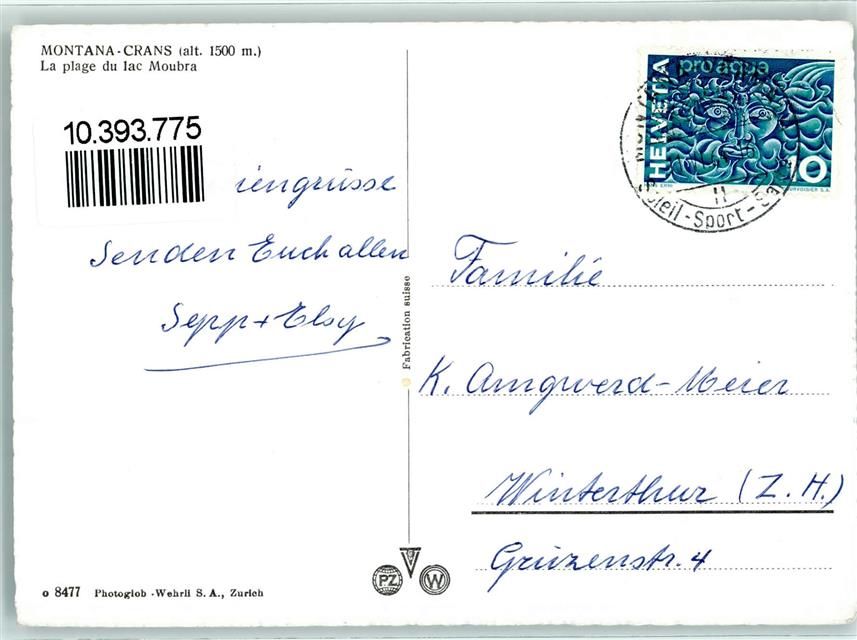 MONTANA-CRANS (alt. 1500 m.)
La plage du lac Moubra
10.393.775
iengrüsse
Senden Euch allen
Sepp + Elsy
Fabrication suisse
HELVETIA
pro aqua
10
II
Soleil-Sport-
Familie
K. Amgwerd-Meier
Winterthur (Z.H.)
Grüzenstr. 4
PZ
W
o 8477 Photoglob-Wehrli S.A., Zurich